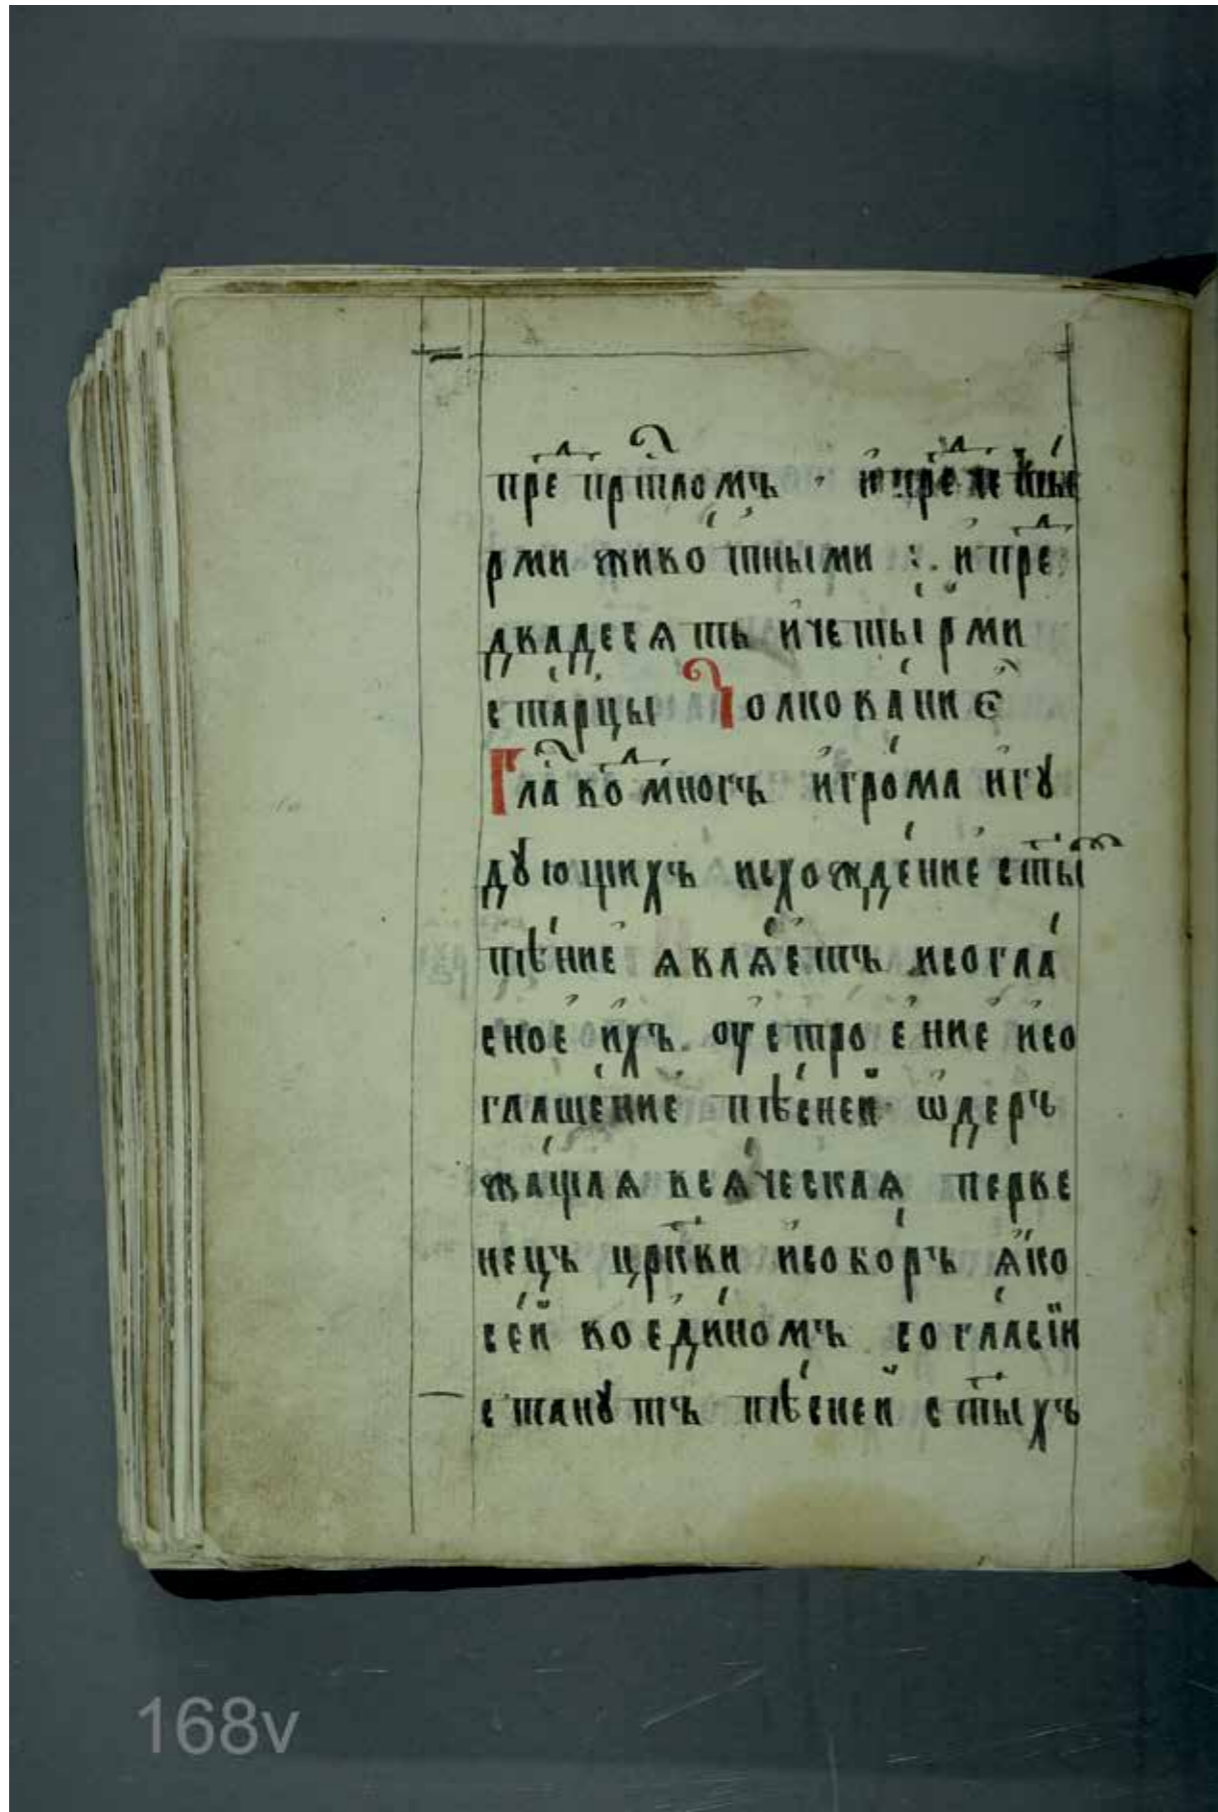 пре́ прⷭ҇тломъ · и҆пре че́ты
рми живо́тными ⁖ и҆пре
двадесѧть и҆четы́рми
ста́рцы Толкова́ниѐ
Гла́ во мно́гъ и҆гро́ма и҆гу
ду́ющихъ исхожде́ние ст҃ы
пѣ́ние ꙗ҆влѧ́етъ исогла́
сное и҆́хъ ᲂу҆строе́ние и҆со
глаше́ние пѣ́сней ѡ҆держ
жа́щаѧ всѧ́ческаѧ перве
нецъ цр҃кви и҆собо́ръ ꙗ҆́ко
се́й воеди́номъ согла́сїи
стану́тъ пѣ́сней ст҃ы́хъ
168v